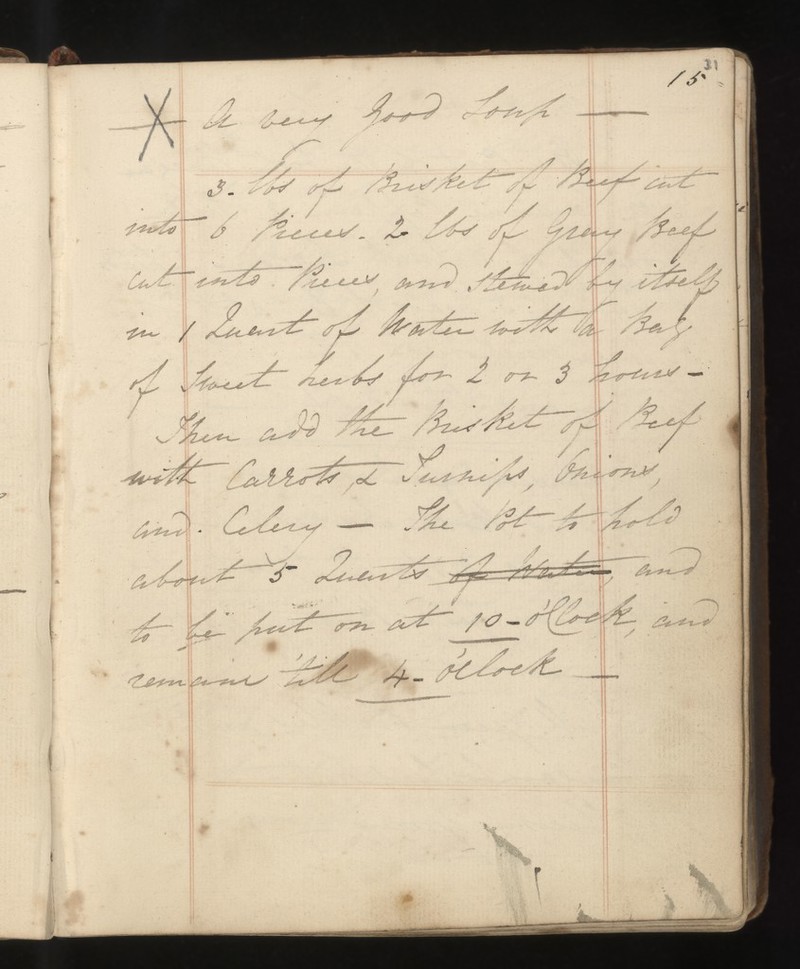 31
15
X A very Good Soup —
3. lbs of Brisket of Beef cut
into 6 Pieces. 2 lbs of Gravy Beef
cut into Pieces, and stewed by itself
in 1 Quart of Water with a Bag
of Sweet herbs for 2 or 3 hours –
Then add the Brisket of Beef
with Carrots, & Turnips, Onions,
and. Celery — The Pot to hold
about 5 Quarts of Water, and
to be put on at 10 – o'Clock, and
remaine 'till 4 – o'Clock —